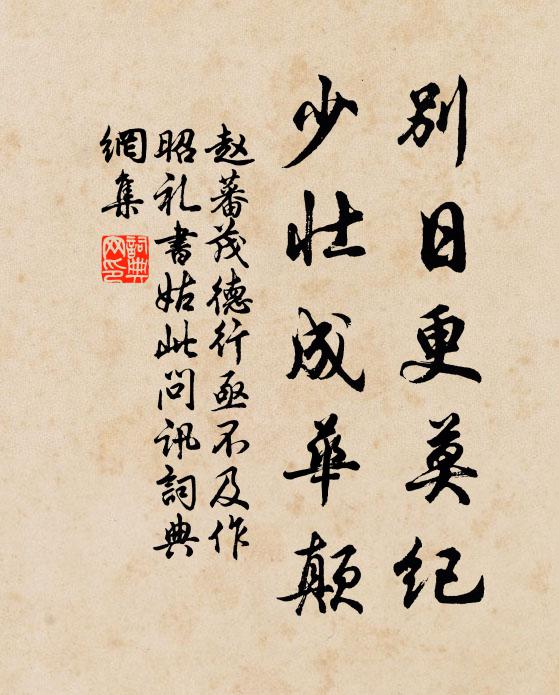 别日更莫纪
少壮成华颠
赵蕃茂德行亟不及作
昭礼书姑此问讯詞典
網集
詞典
网印